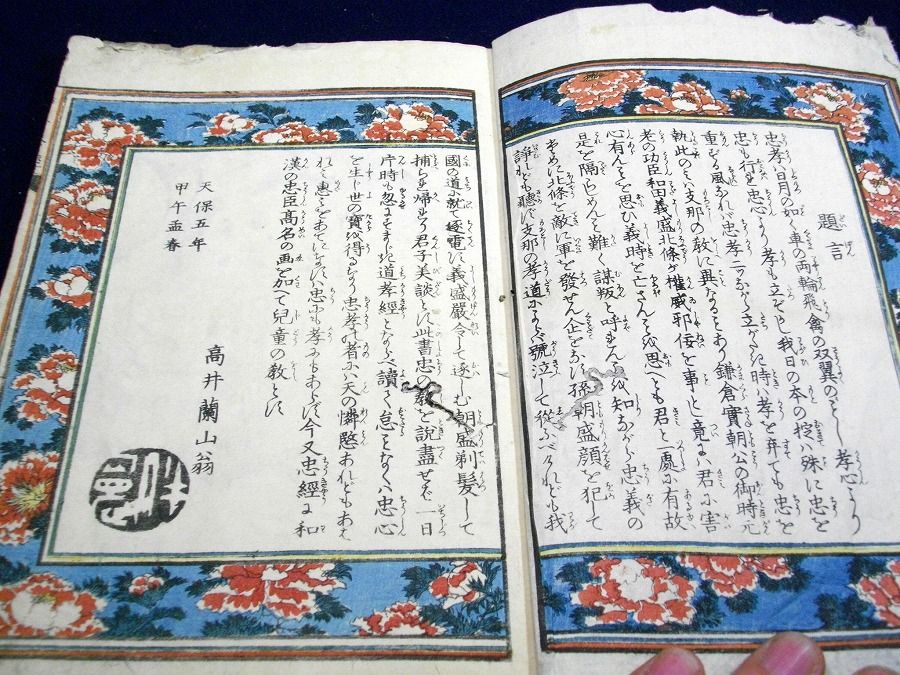 題言
忠孝ハ日月の如く車の両輪飛禽の双翼のごとし孝心より
忠も行ハれ忠心より孝も立べし我日の本の掟ハ殊に忠を
重ずる風なれバ忠孝二ツながら立がたき時ハ孝を弃ても忠を
執此のミハ支那の教に異なるとあり鎌倉實朝公の御時元
老の功臣和田義盛北條が權威邪佞を事とし竟には君に害
心有んことを思ひ義時を亡さんことを思へども君と一處に有故
是を隔しめんと難く謀叛と呼れんことを知ながら忠義の
ために北條を敵に軍を發せん企をなす孫朝盛顔を犯して
諍れども聴ず支那の孝道ならバ號泣して從ふべけれども我
國の道に就て逐電す義盛嚴令して逐しむ朝盛剃髪して
捕られ帰れり君子美談とす此書忠の義を説盡せば一日
片時も忽にすまじき道孝經とならべ讀て怠ことなくハ忠心
を生じ世の寶を得るなり忠孝の者にハ天の憐愍あれどもあま
れて惠ミをあてとなすハ忠にも孝にもあらず今又忠經に和
漢の忠臣高名の画を加て兒童の教とす
天保五年
甲午孟春
高井蘭山翁